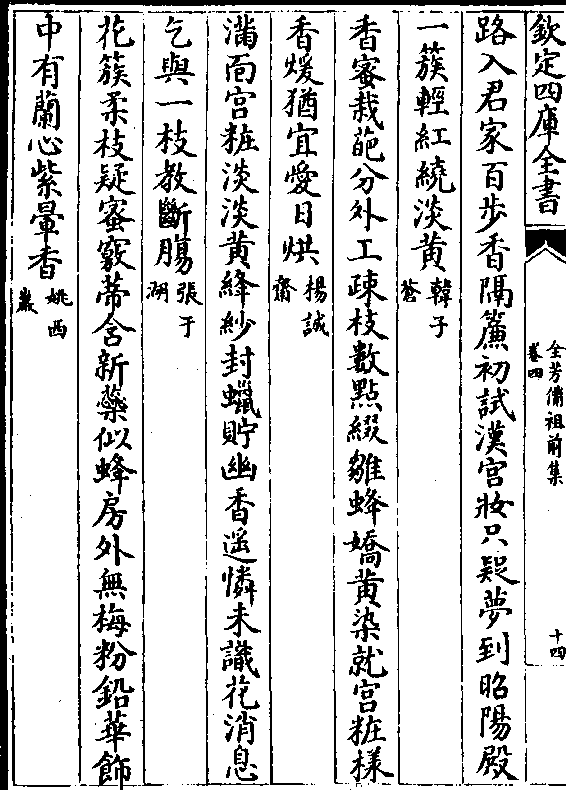 欽定四庫全書
全芳備祖前集
卷四
十四
路入君家百步香隔簾初試漢宫妝只疑夢到昭陽殿
一簇輕紅繞淡黄韓子蒼
香蜜栽葩分外工疎枝數點綴雛蜂嬌黄染就宫粧樣
香煖猶宜愛日烘楊誠齋
滿面宫粧淡淡黄絳紗封蠟貯幽香遥憐未識花消息
乞與一枝教斷膓張于湖
花簇柔枝疑蜜竅蒂含新蘂似蜂房外無梅粉鉛華飾
中有蘭心紫暈香姚西巖